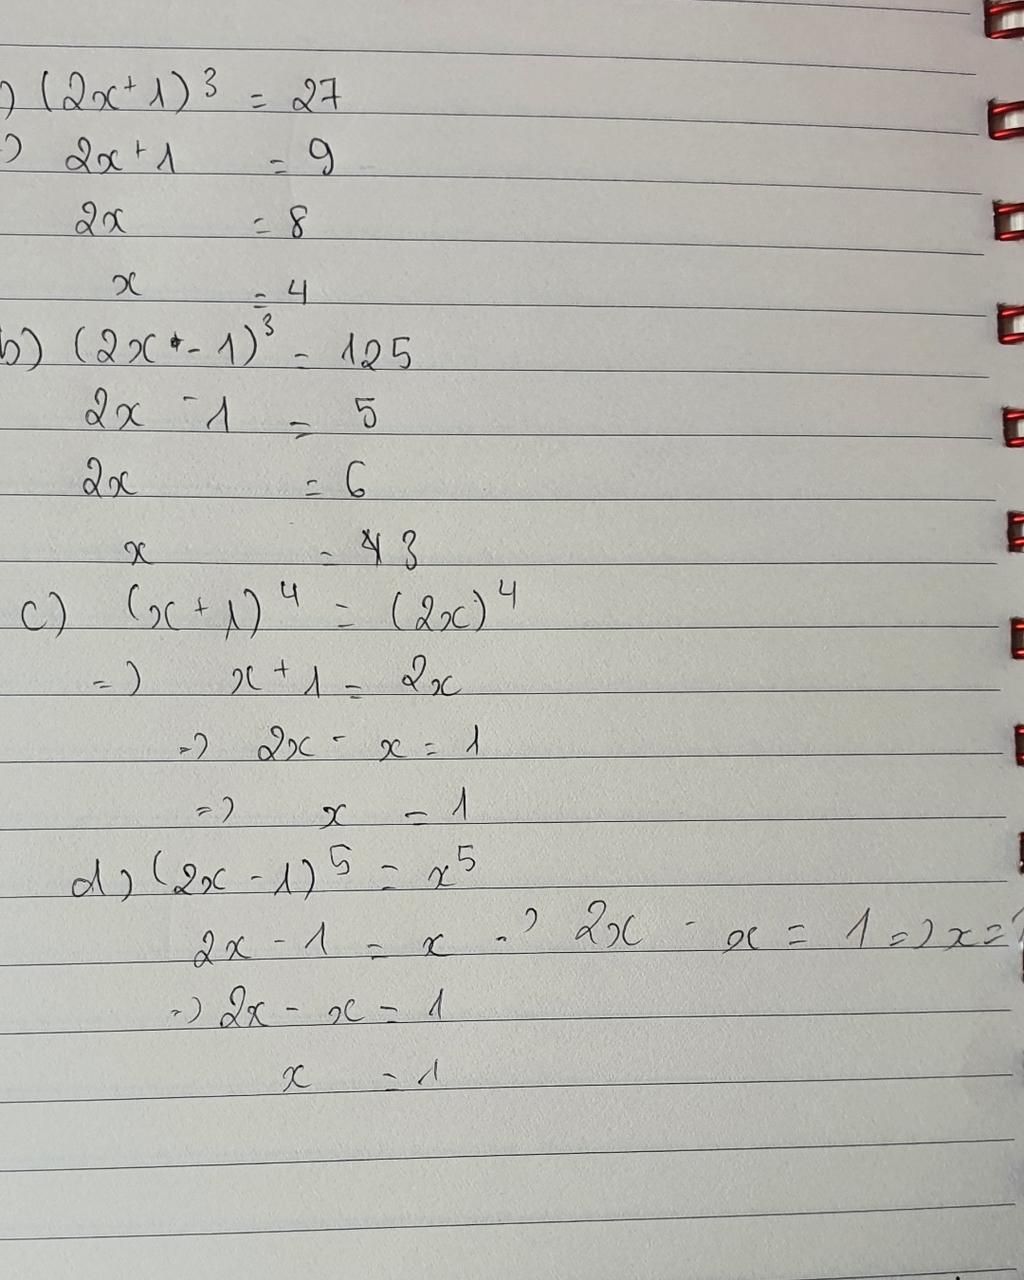 ) (2x+1)³ = 27
=) 2x+1 = 9
2x = 8
x = 4
b) (2x - 1)³ = 125
2x - 1 = 5
2x = 6
x = 3
c) (x+1)⁴ = (2x)⁴
=) x+1 = 2x
=) 2x - x = 1
=) x = 1
d) (2x - 1)⁵ = x⁵
2x - 1 = x =) 2x - x = 1 =) x =
=) 2x - x = 1
x = 1